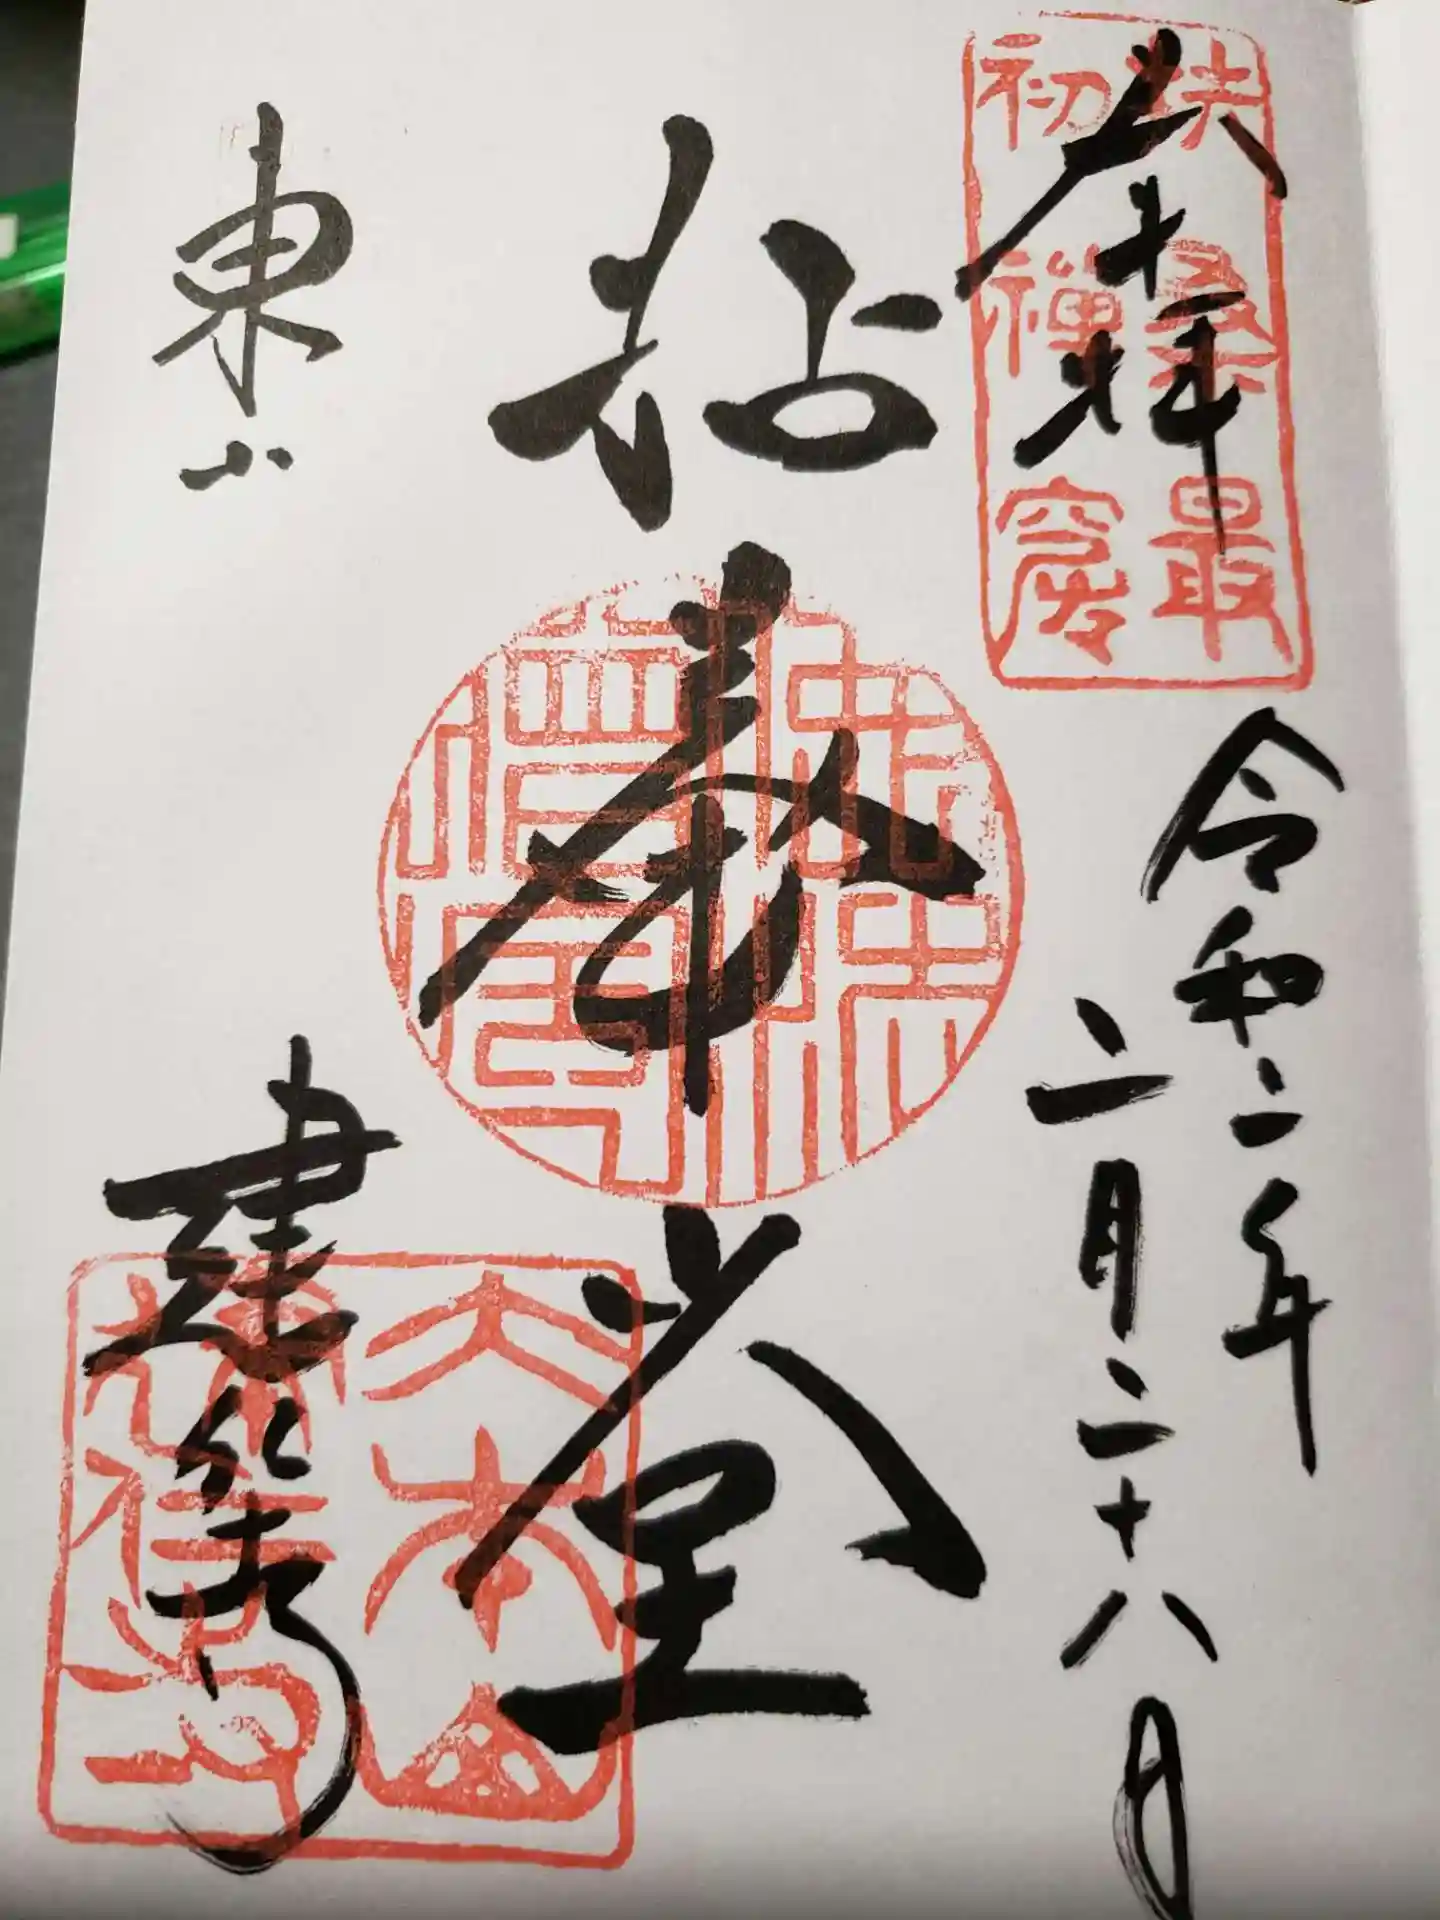 奉拝
扶桑最
初禪窟
令和二年
二月二十八日
拈華堂
佛法
僧寶
東山
建仁寺
大本山